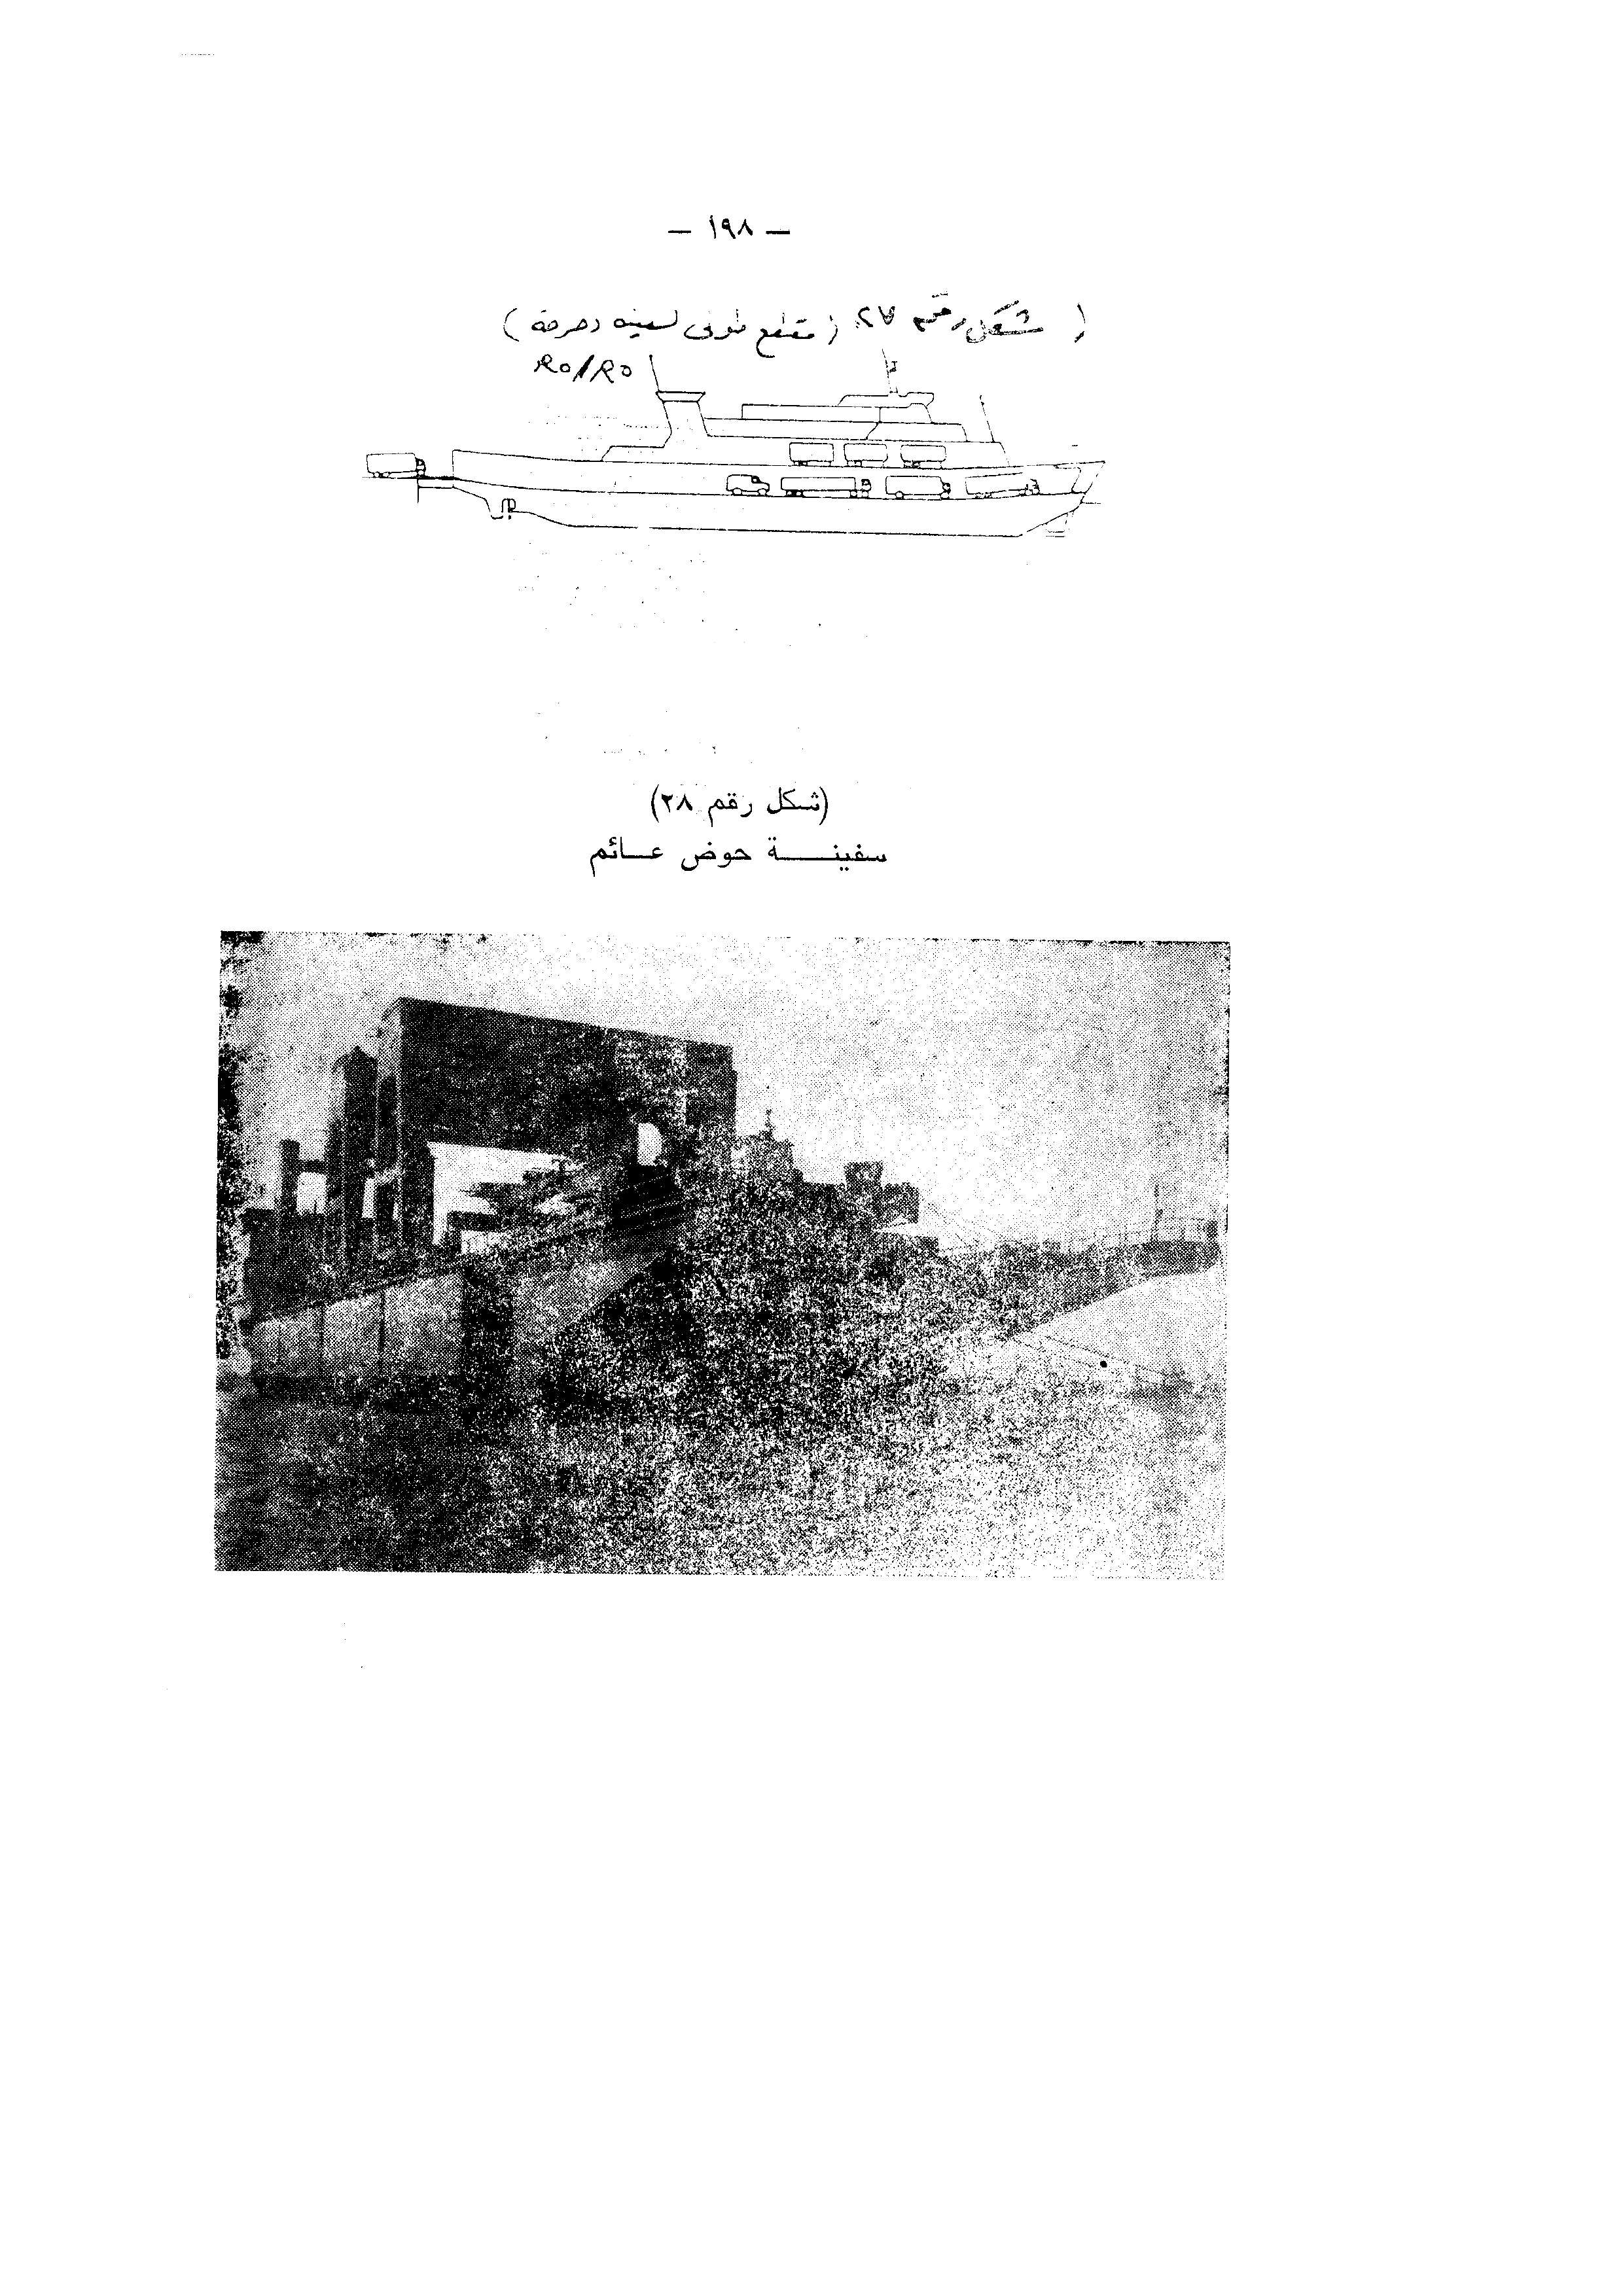 — ١٩٨ —
( شكل رقم ٢٧ ( مقطع طولى لسفينه دحرجة )
RO/RO
(شكل رقم ٢٨)
سفينـــــة حوض عــائم